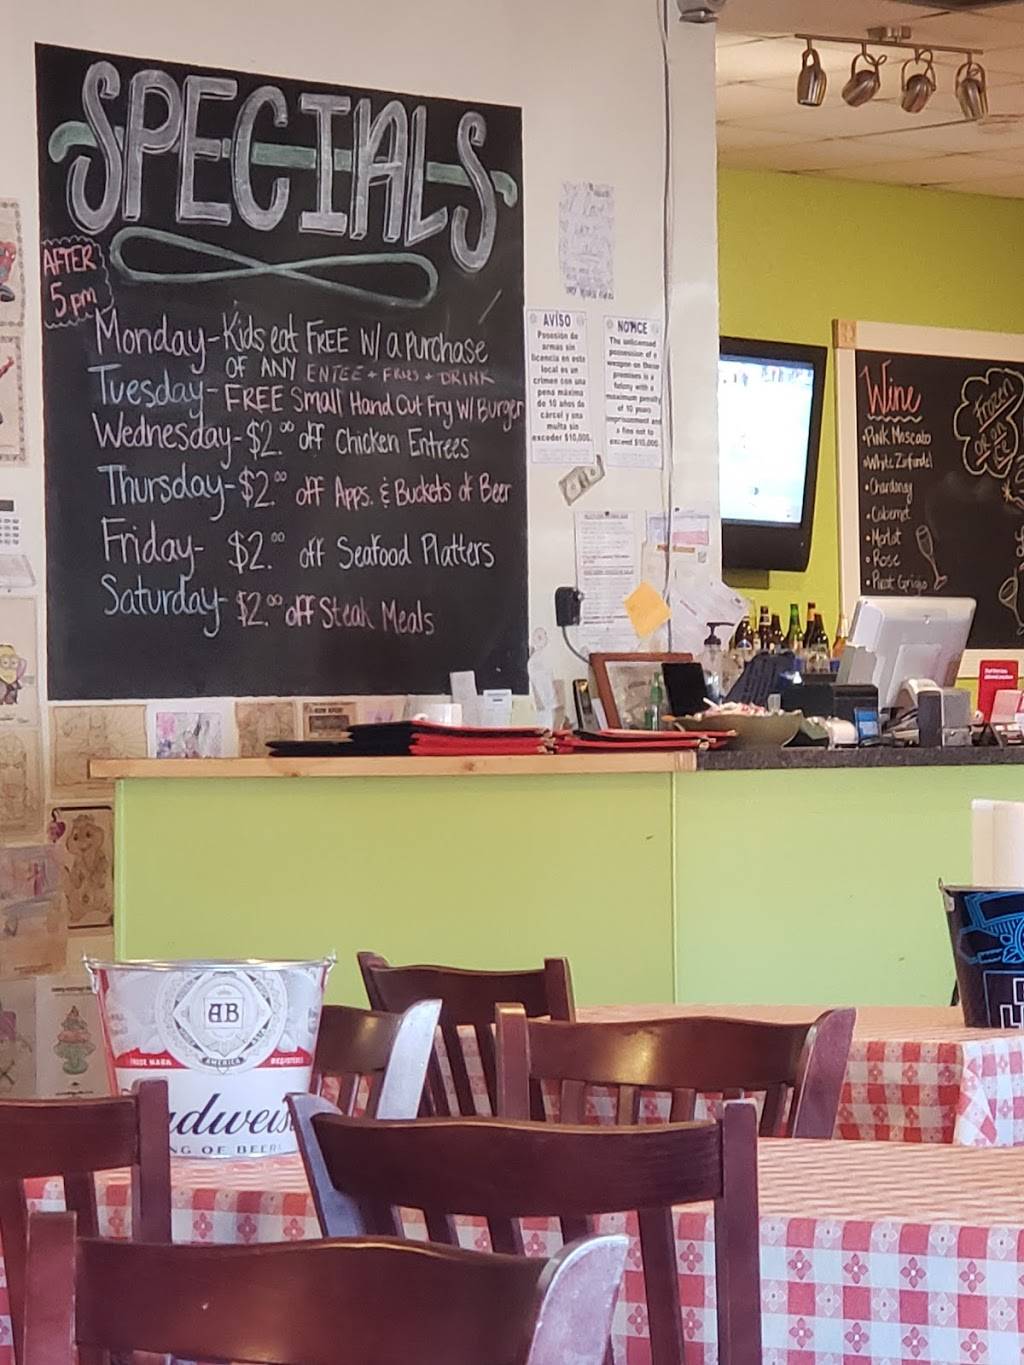 SPECIALS
AFTER
5 pm
Monday - Kids eat FREE W/ a purchase
OF ANY ENTEE + FRIES + DRINK
Tuesday - FREE Small Hand Cut Fry W/ Burger
Wednesday - $2.00 off Chicken Entrees
Thursday - $2.00 off Apps. & Buckets of Beer
Friday - $2.00 off Seafood Platters
Saturday - $2.00 off Steak Meals
AVÍSO
Posesión de
armas sin
licencia en este
local es un
crimen con una
pena máxima
de 10 años de
cárcel y una
multa sin
exceder $10,000.
NOTICE
The unlicensed
possession of a
weapon on these
premises is a
felony with a
maximum penalty
of 10 years
imprisonment and
a fine not to
exceed $10,000.
Wine
• Pink Moscato
• White Zinfandel
• Chardonay
• Cabernet
• Merlot
• Rose
• Pinot Grigio
Frozen
or on
AB
TRADE MARK
AMERICA
REGISTERED
udweis
NG OF BEER